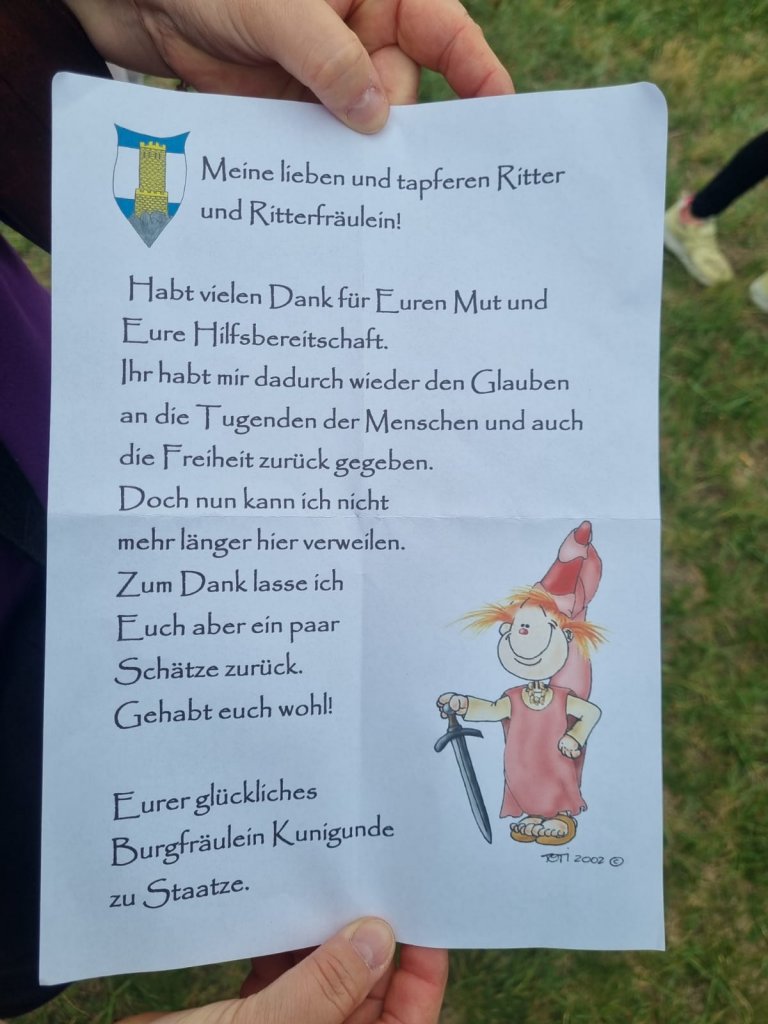 Meine lieben und tapferen Ritter
und Ritterfräulein!
Habt vielen Dank für Euren Mut und
Eure Hilfsbereitschaft.
Ihr habt mir dadurch wieder den Glauben
an die Tugenden der Menschen und auch
die Freiheit zurück gegeben.
Doch nun kann ich nicht
mehr länger hier verweilen.
Zum Dank lasse ich
Euch aber ein paar
Schätze zurück.
Gehabt euch wohl!
Eurer glückliches
Burgfräulein Kunigunde
zu Staatze.
TETI 2002 ©